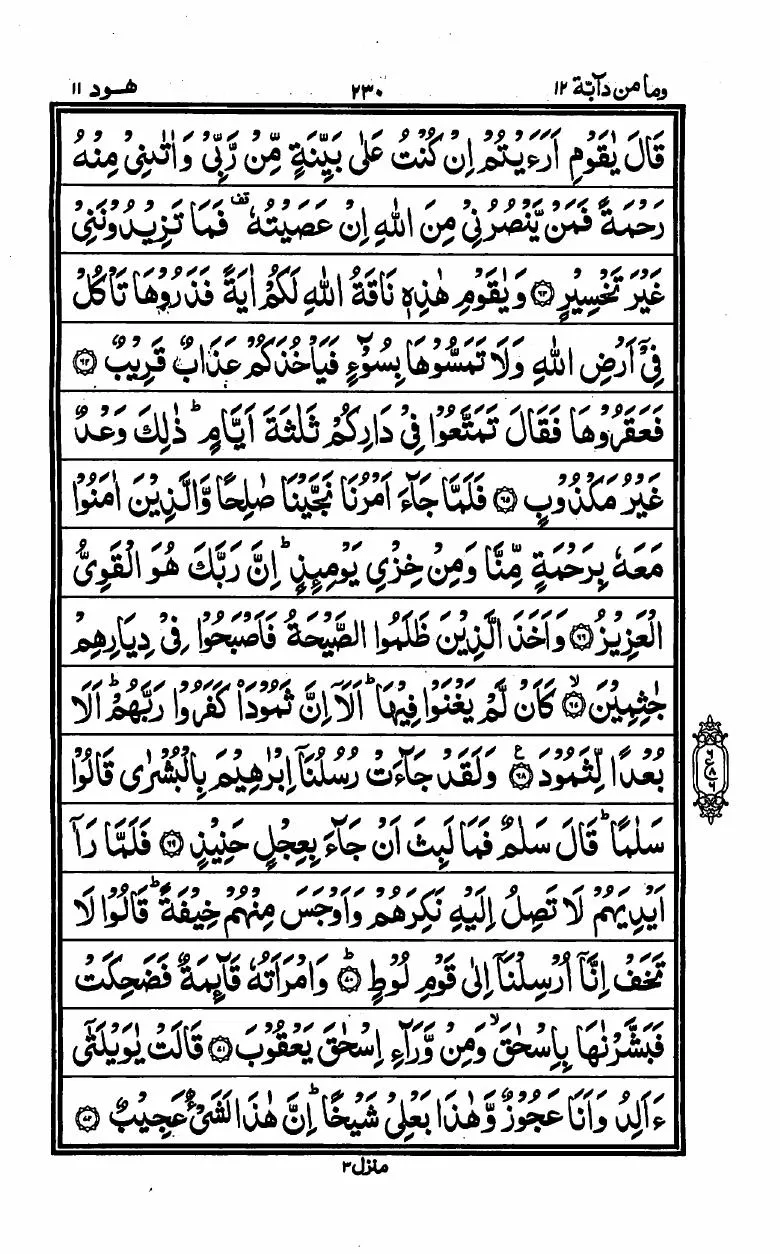 وما من دآبة ١٢ ٢٣٠ هود ١١
قَالَ يٰقَوْمِ اَرَءَيْتُمْ اِنْ كُنْتُ عَلٰى بَيِّنَةٍ مِّنْ رَّبِّىْ وَاٰتٰىنِىْ مِنْهُ
رَحْمَةً فَمَنْ يَّنْصُرُنِىْ مِنَ اللّٰهِ اِنْ عَصَيْتُهٗ قف فَمَا تَزِيْدُوْنَنِىْ
غَيْرَ تَخْسِيْرٍ ۝٦٣ وَيٰقَوْمِ هٰذِهٖ نَاقَةُ اللّٰهِ لَكُمْ اٰيَةً فَذَرُوْهَا تَاْكُلْ
فِىْۤ اَرْضِ اللّٰهِ وَلَا تَمَسُّوْهَا بِسُوْٓءٍ فَيَاْخُذَكُمْ عَذَابٌ قَرِيْبٌ ۝٦٤
فَعَقَرُوْهَا فَقَالَ تَمَتَّعُوْا فِىْ دَارِكُمْ ثَلٰثَةَ اَيَّامٍ ؕ ذٰلِكَ وَعْدٌ
غَيْرُ مَكْذُوْبٍ ۝٦٥ فَلَمَّا جَآءَ اَمْرُنَا نَجَّيْنَا صٰلِحًا وَّالَّذِيْنَ اٰمَنُوْا
مَعَهٗ بِرَحْمَةٍ مِّنَّا وَمِنْ خِزْىِ يَوْمِئِذٍ ؕ اِنَّ رَبَّكَ هُوَ الْقَوِىُّ
الْعَزِيْزُ ۝٦٦ وَاَخَذَ الَّذِيْنَ ظَلَمُوا الصَّيْحَةُ فَاَصْبَحُوْا فِىْ دِيَارِهِمْ
جٰثِمِيْنَ ۝٦٧ ۙ كَاَنْ لَّمْ يَغْنَوْا فِيْهَا ؕ اَلَاۤ اِنَّ ثَمُوْدَا۟ كَفَرُوْا رَبَّهُمْ ؕ اَلَا
بُعْدًا لِّثَمُوْدَ ۝٦٨ ع وَلَقَدْ جَآءَتْ رُسُلُنَاۤ اِبْرٰهِيْمَ بِالْبُشْرٰى قَالُوْا
سَلٰمًا ؕ قَالَ سَلٰمٌ فَمَا لَبِثَ اَنْ جَآءَ بِعِجْلٍ حَنِيْذٍ ۝٦٩ فَلَمَّا رَاٰۤ
اَيْدِيَهُمْ لَا تَصِلُ اِلَيْهِ نَكِرَهُمْ وَاَوْجَسَ مِنْهُمْ خِيْفَةً ؕ قَالُوْا لَا
تَخَفْ اِنَّاۤ اُرْسِلْنَاۤ اِلٰى قَوْمِ لُوْطٍ ۝٧٠ ؕ وَامْرَاَتُهٗ قَآئِمَةٌ فَضَحِكَتْ
فَبَشَّرْنٰهَا بِاِسْحٰقَ ۙ وَمِنْ وَّرَآءِ اِسْحٰقَ يَعْقُوْبَ ۝٧١ قَالَتْ يٰوَيْلَتٰٓى
ءَاَلِدُ وَاَنَا عَجُوْزٌ وَّهٰذَا بَعْلِىْ شَيْخًا ؕ اِنَّ هٰذَا لَشَىْءٌ عَجِيْبٌ ۝٧٢
ع
٨
٦
منزل ٣